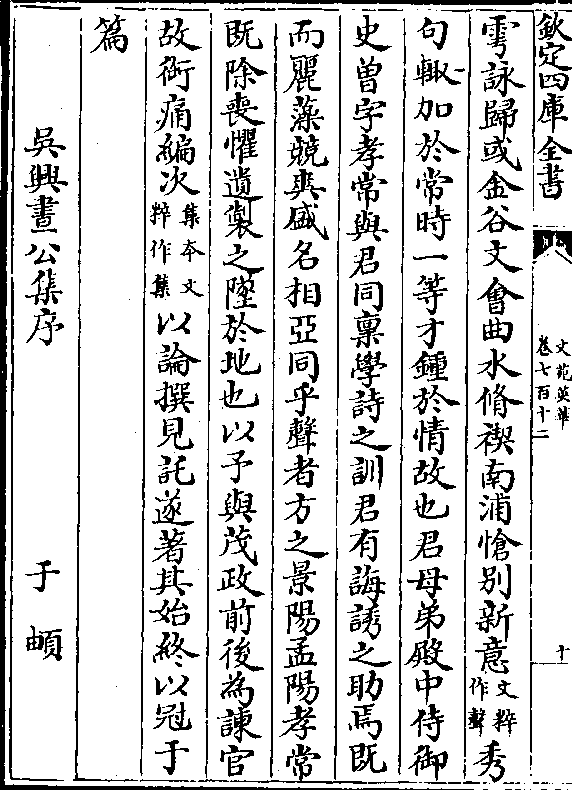 欽定四庫全書
文苑英華
卷七百十二
十
雩詠歸或金谷文會曲水脩禊南浦愴別新意文粹作聲秀
句輙加於常時一等才鍾於情故也君母弟殿中侍御
史曽字孝常與君同稟學詩之訓君有誨誘之助焉既
而麗藻競爽盛名相亞同乎聲者方之景陽孟陽孝常
既除喪懼遺製之墜於地也以予與茂政前後為諫官
故銜痛編次集本文粹作集以論撰見託遂著其始終以冠于
篇
吳興晝公集序 于頔